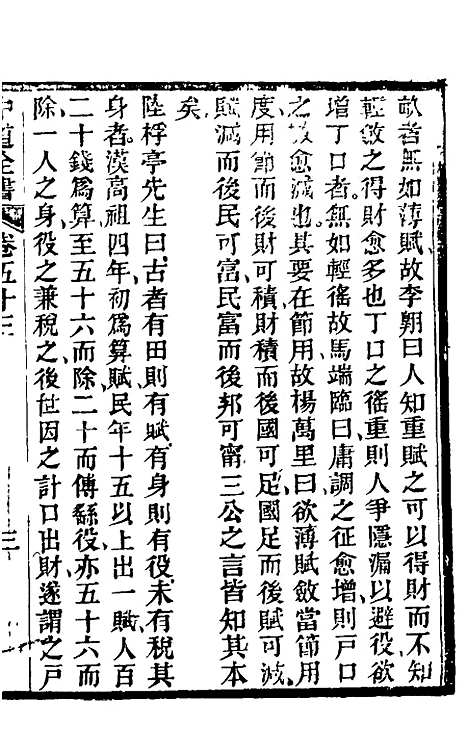 畝者無如薄賦故李翺曰人知重賦之可以得財而不知
輕斂之得財愈多也丁口之徭重則人爭隱漏以避役欲
增丁口者無如輕徭故馬端臨曰庸調之征愈增則戶口
之數愈減也其要在於節用故楊萬里曰欲薄賦斂當節用
度用節而後財可積財積而後國可足國足而後賦可減
賦減而後民可富民富而後邦可甯三公之言皆知其本
矣
陸桴亭先生曰古者有田則有賦有身則有役未有稅其
身者漢高祖四年初爲算賦民年十五以上出一賦人百
二十錢爲算至五十六而除二十而傅繇役亦五十六而
除一人之身役之兼稅之後世因之計口出財遂謂之戶
中道全書
卷五十三
三